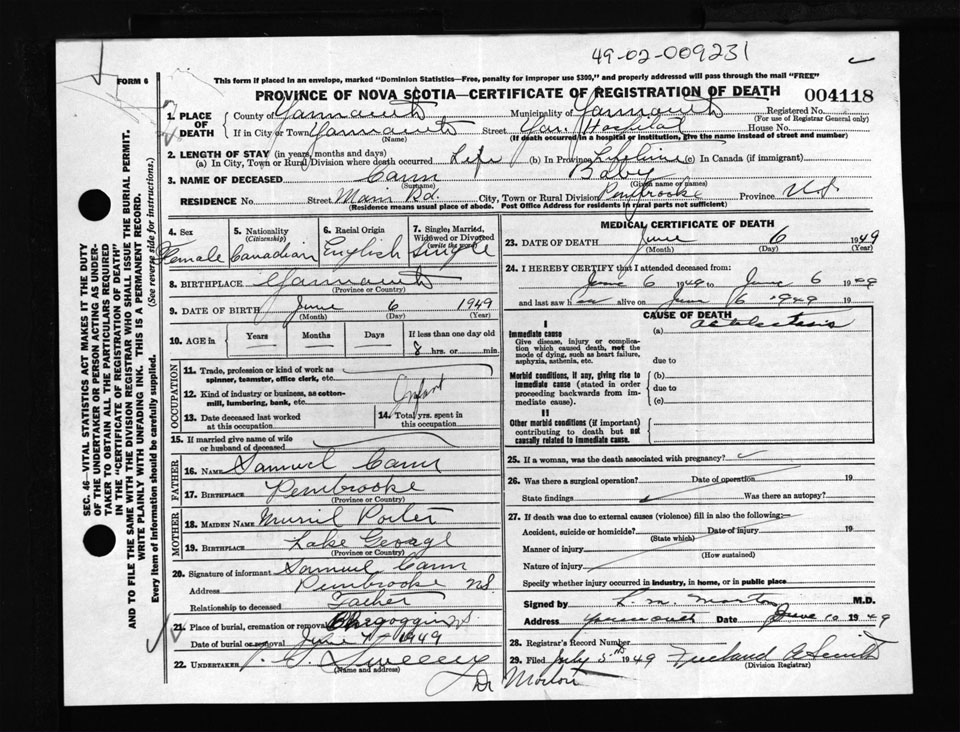 49-02-009231
FORM 6
This form if placed in an envelope, marked "Dominion Statistics—Free, penalty for improper use $300," and properly addressed will pass through the mail "FREE"
PROVINCE OF NOVA SCOTIA—CERTIFICATE OF REGISTRATION OF DEATH
004118
1. PLACE OF DEATH
County of Yarmouth Municipality of Yarmouth Registered No.
(For use of Registrar General only)
If in City or Town Yarmouth Street Yar. Hospital House No.
(Name) (If death occurred in a hospital or institution, give the name instead of street and number)
2. LENGTH OF STAY (in years, months and days)
(a) In City, Town or Rural Division where death occurred Life (b) In Province Lifetime (c) In Canada (if immigrant)
3. NAME OF DECEASED Cann Baby
(Surname) (Given name or names)
RESIDENCE No. Street Main Rd. City, Town or Rural Division Pembrooke Province N.S
(Residence means usual place of abode. Post Office Address for residents in rural parts not sufficient)
4. Sex
Female
5. Nationality
(Citizenship)
Canadian
6. Racial Origin
English
7. Single, Married, Widowed or Divorced
(write the word)
Single
8. BIRTHPLACE Yarmouth
(Province or Country)
9. DATE OF BIRTH June 6 1949
(Month) (Day) (Year)
10. AGE in Years Months Days If less than one day old
8 hrs. or min.
OCCUPATION
11. Trade, profession or kind of work as spinner, teamster, office clerk, etc.
12. Kind of industry or business, as cotton-mill, lumbering, bank, etc. Infant
13. Date deceased last worked at this occupation
14. Total yrs. spent in this occupation
15. If married give name of wife or husband of deceased
FATHER
16. NAME Samuel Cann
17. BIRTHPLACE Pembrooke
(Province or Country)
MOTHER
18. MAIDEN NAME Muriel Porter
19. BIRTHPLACE Lake George
(Province or Country)
20. Signature of informant Samuel Cann
Address Pembrooke NS.
Relationship to deceased Father
21. Place of burial, cremation or removal Chegoggin NS.
Date of burial or removal June 7 - 1949
22. UNDERTAKER Sweeny
(Name and address)
Dr Morton
MEDICAL CERTIFICATE OF DEATH
23. DATE OF DEATH June 6 1949
(Month) (Day) (Year)
24. I HEREBY CERTIFY that I attended deceased from:
June 6 1949 to June 6 1949
and last saw h er alive on June 6 1949 19
CAUSE OF DEATH
I
Immediate cause
Give disease, injury or complication which caused death, not the mode of dying, such as heart failure, asphyxia, asthenia, etc.
(a) Atelectasis
due to
Morbid conditions, if any, giving rise to immediate cause (stated in order proceeding backwards from immediate cause).
(b)
due to
(c)
II
Other morbid conditions (if important) contributing to death but not causally related to immediate cause.
25. If a woman, was the death associated with pregnancy?
26. Was there a surgical operation? Date of operation 19
State findings Was there an autopsy?
27. If death was due to external causes (violence) fill in also the following:—
Accident, suicide or homicide? Date of injury 19
(State which)
Manner of injury
(How sustained)
Nature of injury
Specify whether injury occurred in industry, in home, or in public place
Signed by L. M. Morton M.D.
Address Yarmouth Date June 10 1949
28. Registrar's Record Number
29. Filed July 5th 1949 Freeland A Smith
(Division Registrar)
SEC. 46—VITAL STATISTICS ACT MAKES IT THE DUTY
OF THE UNDERTAKER OR PERSON ACTING AS UNDER-
TAKER TO OBTAIN ALL THE PARTICULARS REQUIRED
IN THE "CERTIFICATE OF REGISTRATION OF DEATH"
AND TO FILE THE SAME WITH THE DIVISION REGISTRAR WHO SHALL ISSUE THE BURIAL PERMIT.
WRITE PLAINLY WITH UNFADING INK. THIS IS A PERMANENT RECORD.
Every item of information should be carefully supplied. (See reverse side for instructions.)